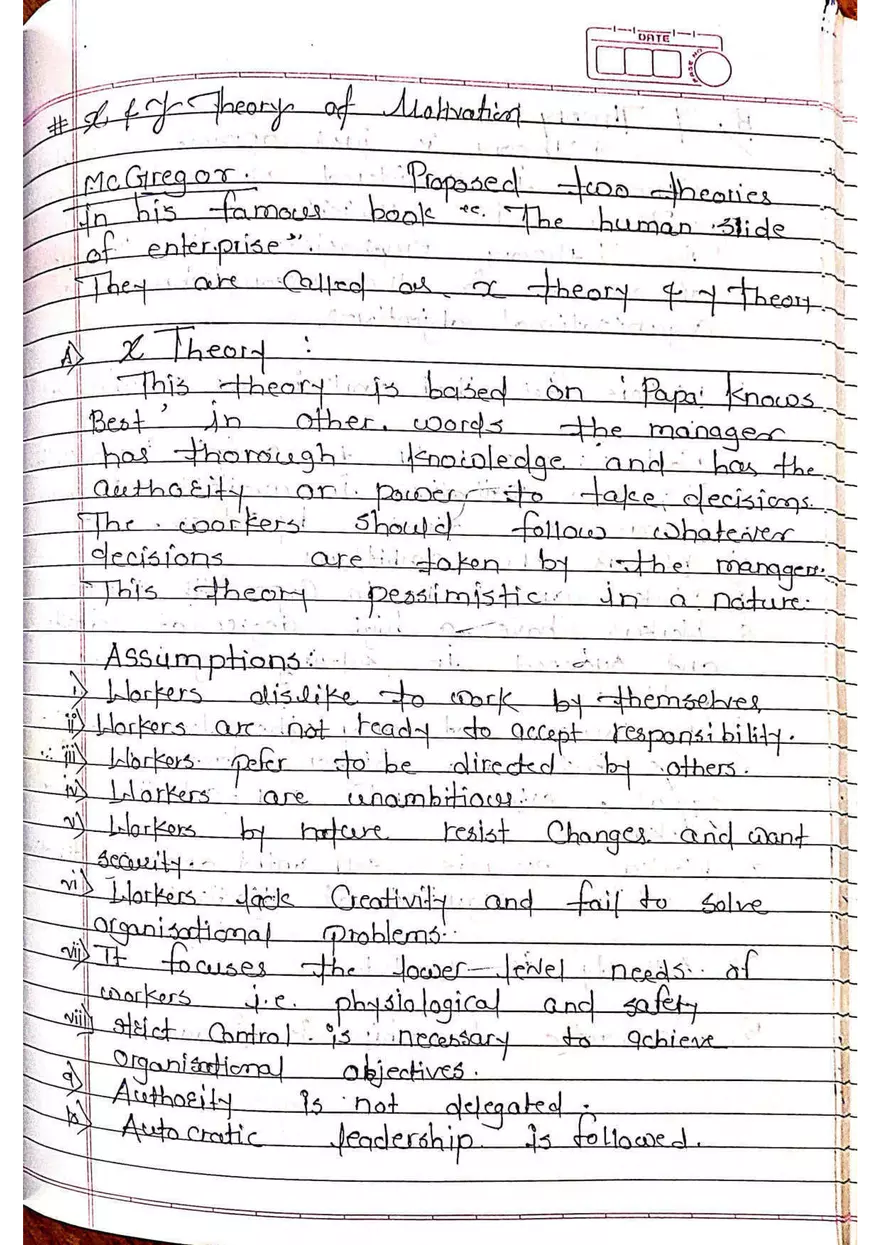 DATE
PAGE NO
# X & Y Theory of Motivation
McGregor. Proposed two theories
in his famous book "The human slide
of enterprise".
They are Called as x theory & y Theory
A) X Theory :
This theory is based on 'Papa knows
Best' in other words the manager
has thorough knowledge and has the
authority or power to take decisions.
The workers should follow whatever
decisions are taken by the manager.
This theory pessimistic in a nature.
Assumptions:
i) Workers dislike to work by themselves
ii) Workers are not ready to accept responsibility.
iii) Workers pefer to be directed by others.
iv) Workers are unambitious.
v) Workers by nature resist Changes and want
security.
vi) Workers lack Creativity and fail to solve
organisational problems.
vii) It focuses the lower-level needs of
workers i.e. physiological and safety
viii) strict Control is necessary to achieve
organisational objectives.
a) Authority is not delegated.
b) Autocratic leadership is followed.